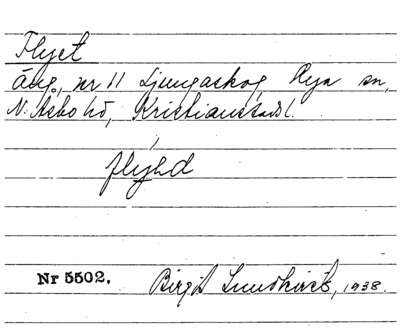 Flyet
Äng, nr 11 Ljungaskog Rya sn,
N. Åsbo hd, Kristianstads l.
flyə́d
Nr 5502.
Birgit Lundkvist, 1938.